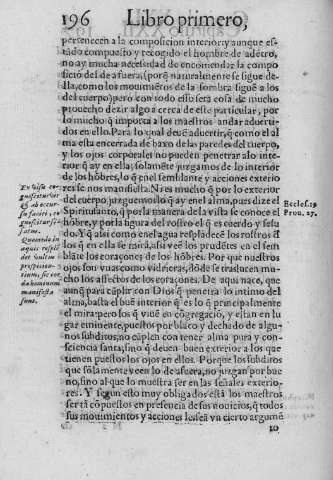 196 Libro primero,
pertenecen a la composicion interior: y aunque es-
tãdo compuesto y recogido el hombre de adẽtro,
no ay mucha necessidad de encomendar la compo
sició de de afuera, (porq̃ naturalmente se sigue de
lla, como los mouimiẽtos de la sombra siguẽ a los
del cuerpo) pero con todo esso sera cosa de mucho
prouecho dezir algo a cerca de este particular, por
lo mucho q̃ importa a los maestros andar aduerti-
dos en ello. Para lo qual deuẽ aduertir, q̃ como el al
ma esta encerrada de baxo de las paredes del cuerpo,
y los ojos corporales no pueden penetrar a lo inte
rior q̃ ay en ella; solamẽte juzgamos de lo interior
de los hõbres, lo q̃ enel semblante y acciones exterio
res se nos manifiesta. Ni es mucho q̃ por lo exterior
del cuerpo juzguemos lo q̃ ay enel alma, pues dize el
Spiritu santo, q̃ por la manera de la vista se conoce el
hõbre, y por la figura del rostro el q̃ es cuerdo y sesu
do. Y q̃ assi como enel agua respladecẽ los rostros ð
los q̃ en ella se mirã, assi veẽ los prudẽtes en el sem
blãte los coraçones de los hõbres. Por que nuestros
ojos son vnas como vidrieras, dõde se traslucen mu-
cho los affectos de los coraçones. De aqui nace, que
aunq̃ para cũplir con Dios q̃ penetra lo intimo del
alma, basta el buẽ interior q̃ es lo q̃ principalmente
el mira: pero los q̃ viuẽ en cõgregació, y estan en lu
gar eminente, puestos por blãco y dechado de algu-
nos subditos, no cũplen con tener alma pura y con-
sciencia santa, sino q̃ deuen buen exterior a los que
tienen puestos los ojos en ellos. Porque los subditos
que sólamente veen lo de afuera, no juzgan por bue
no, sino al que lo muestra ser en las señales exterio-
res. Y segun esto muy obligados estã los maestros
ser tã cõpuestos en presencia de sus nouicios, q̃ todos
sus mouimientos y acciones les seã vn cierto argumẽ
to
Ex visu co-
gnoscitur vir
& ab occur
su faciei, co
gnoscitur sẽ
satus.
Quomodo in
aquis resplẽ
det vultus
prospicien-
tium, sic cor
da hominum
manifesta
sunt.
Eccles. 19
Prou. 27.